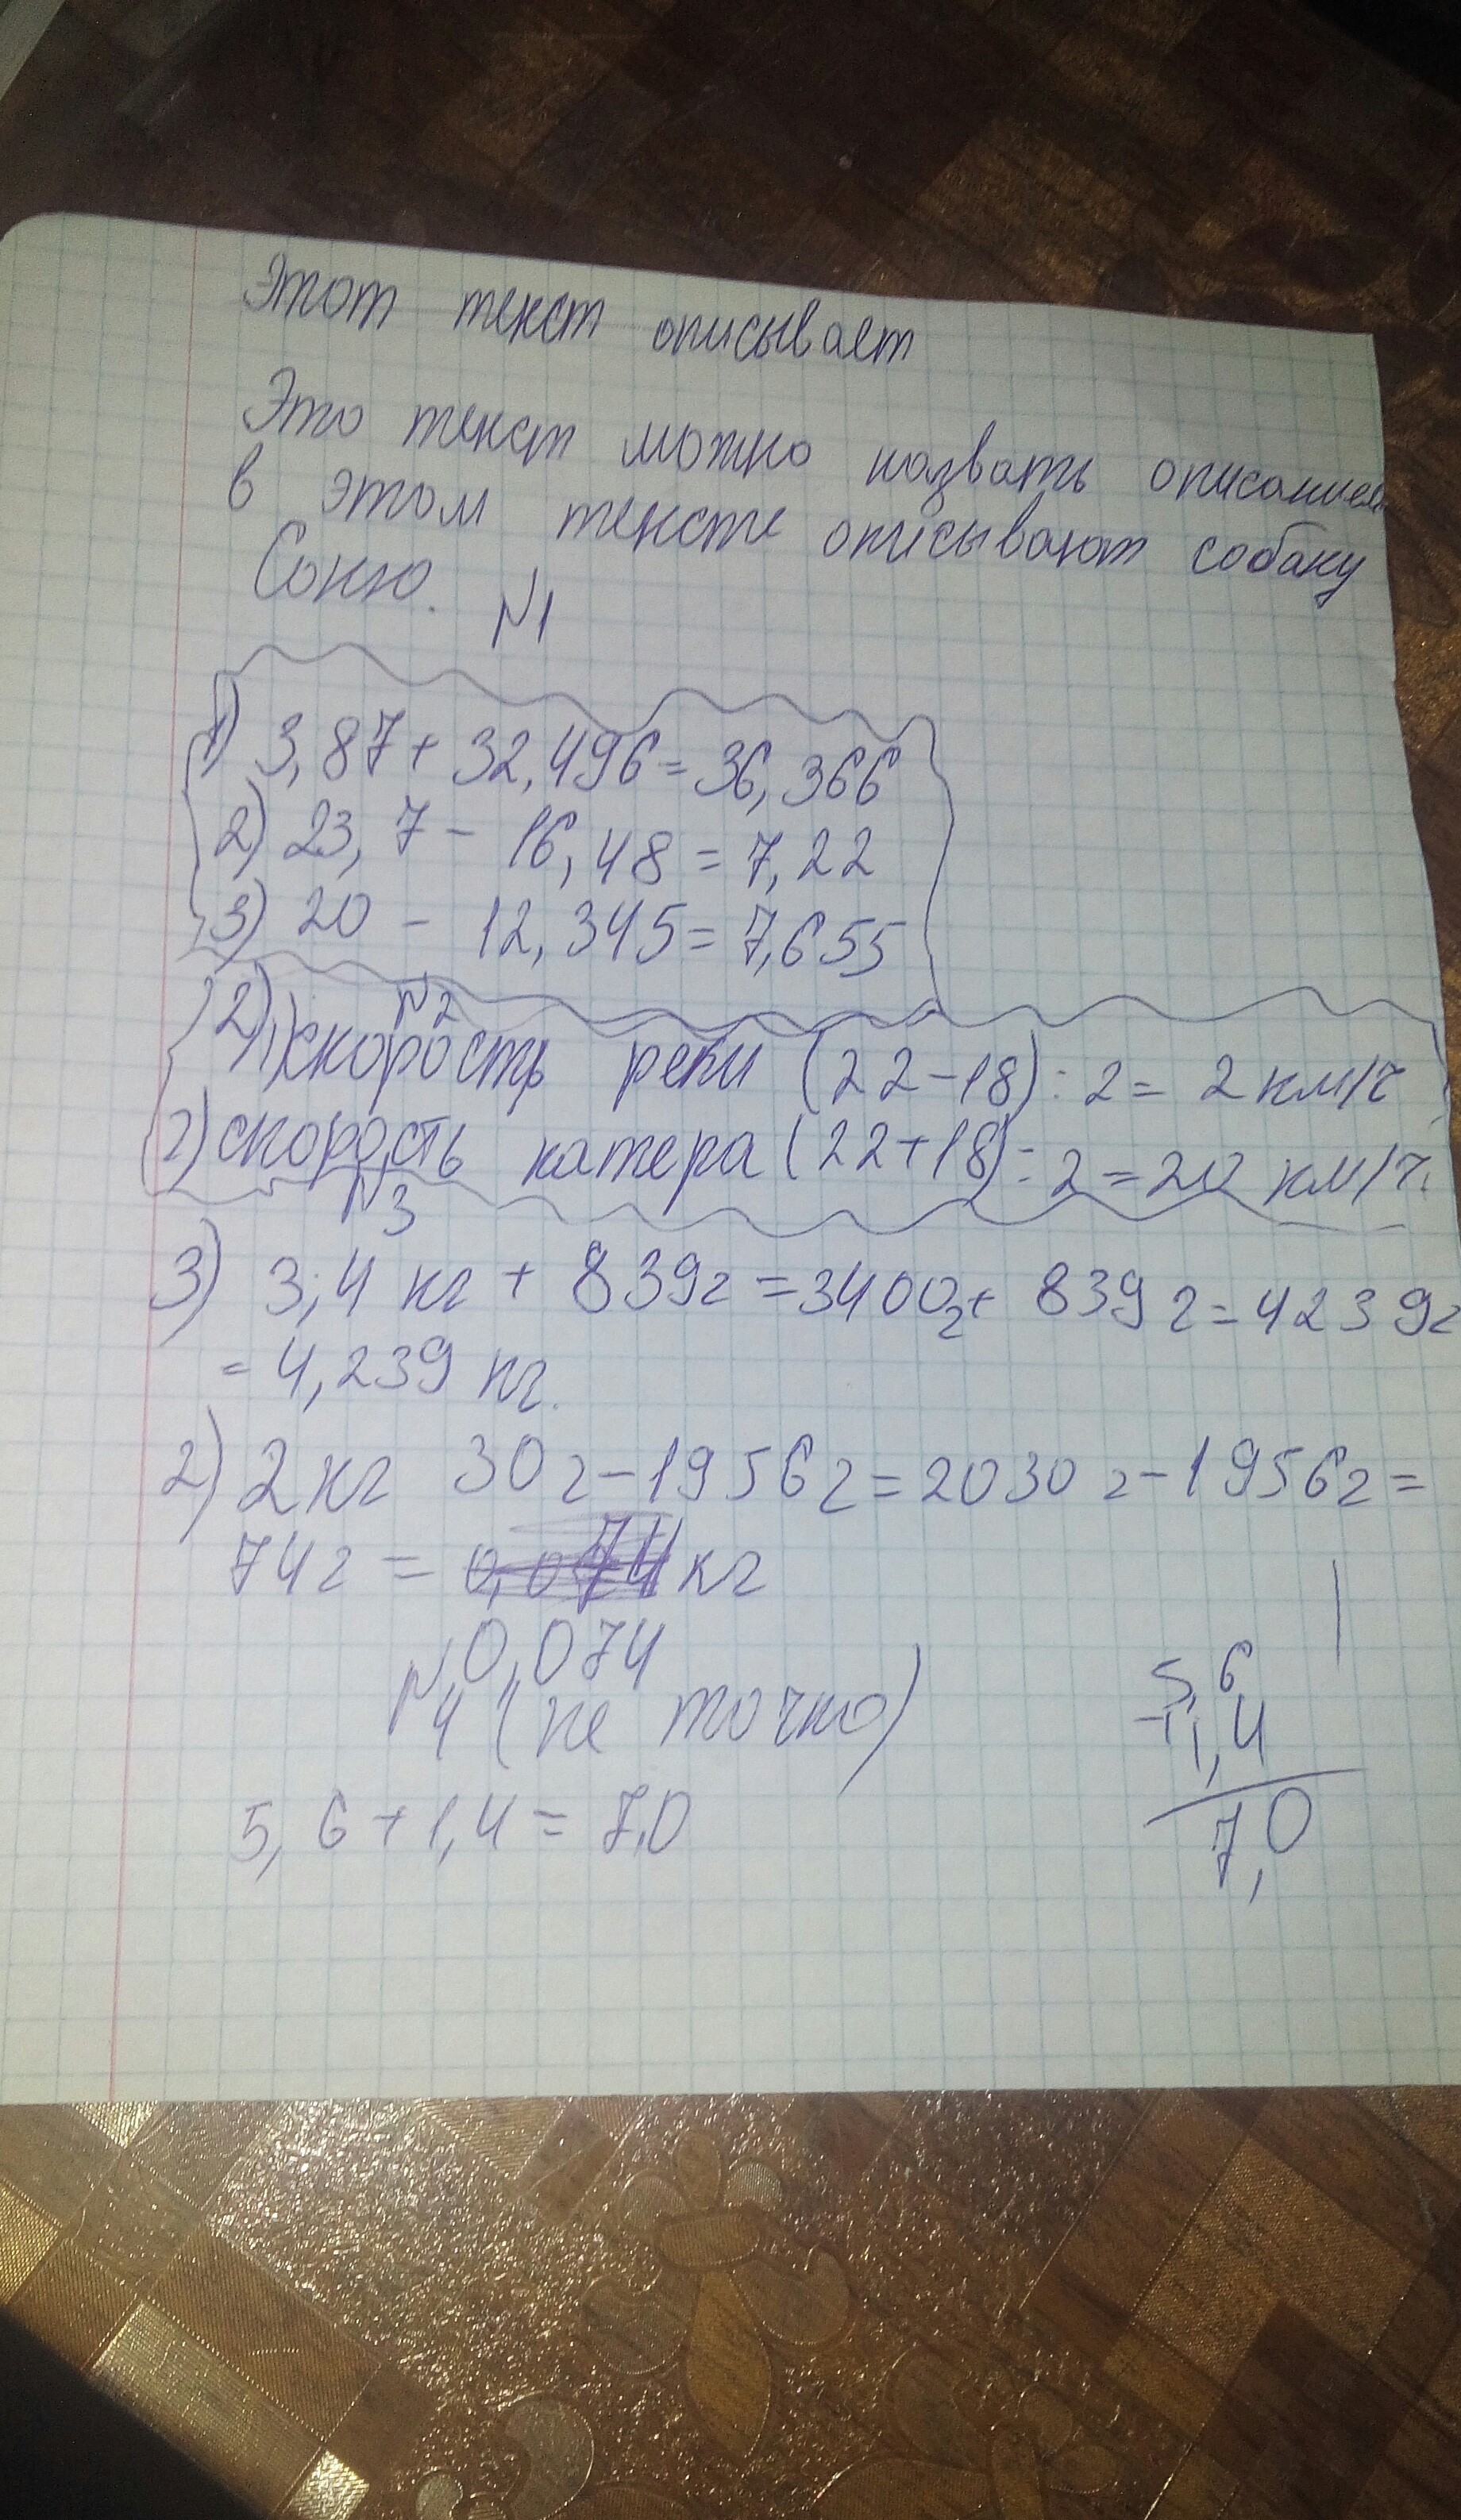 Этот текст описывает
Это текст можно назвать описанием
в этом тексте описывают собаку
Соню.
N1
1) 3,87 + 32,496 = 36,366
2) 23,7 - 16,48 = 7,22
3) 20 - 12,345 = 7,655
N2
2) 1) скорость реки (22-18) : 2 = 2 км/ч
2) скорость катера (22+18) : 2 = 20 км/ч.
N3
3) 3,4 кг + 839г = 3400г + 839 г = 4239г
= 4,239 кг.
2) 2 кг 30 г - 1956г = 2030 г - 1956г =
74г = 0,074 кг
0,074
N4 (не точно)
5,6 + 1,4 = 7,0
5,6
+1,4
7,0